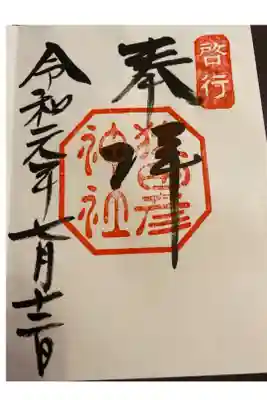 啓行
奉拝
猿田彦
神社
令和元年七月十二日